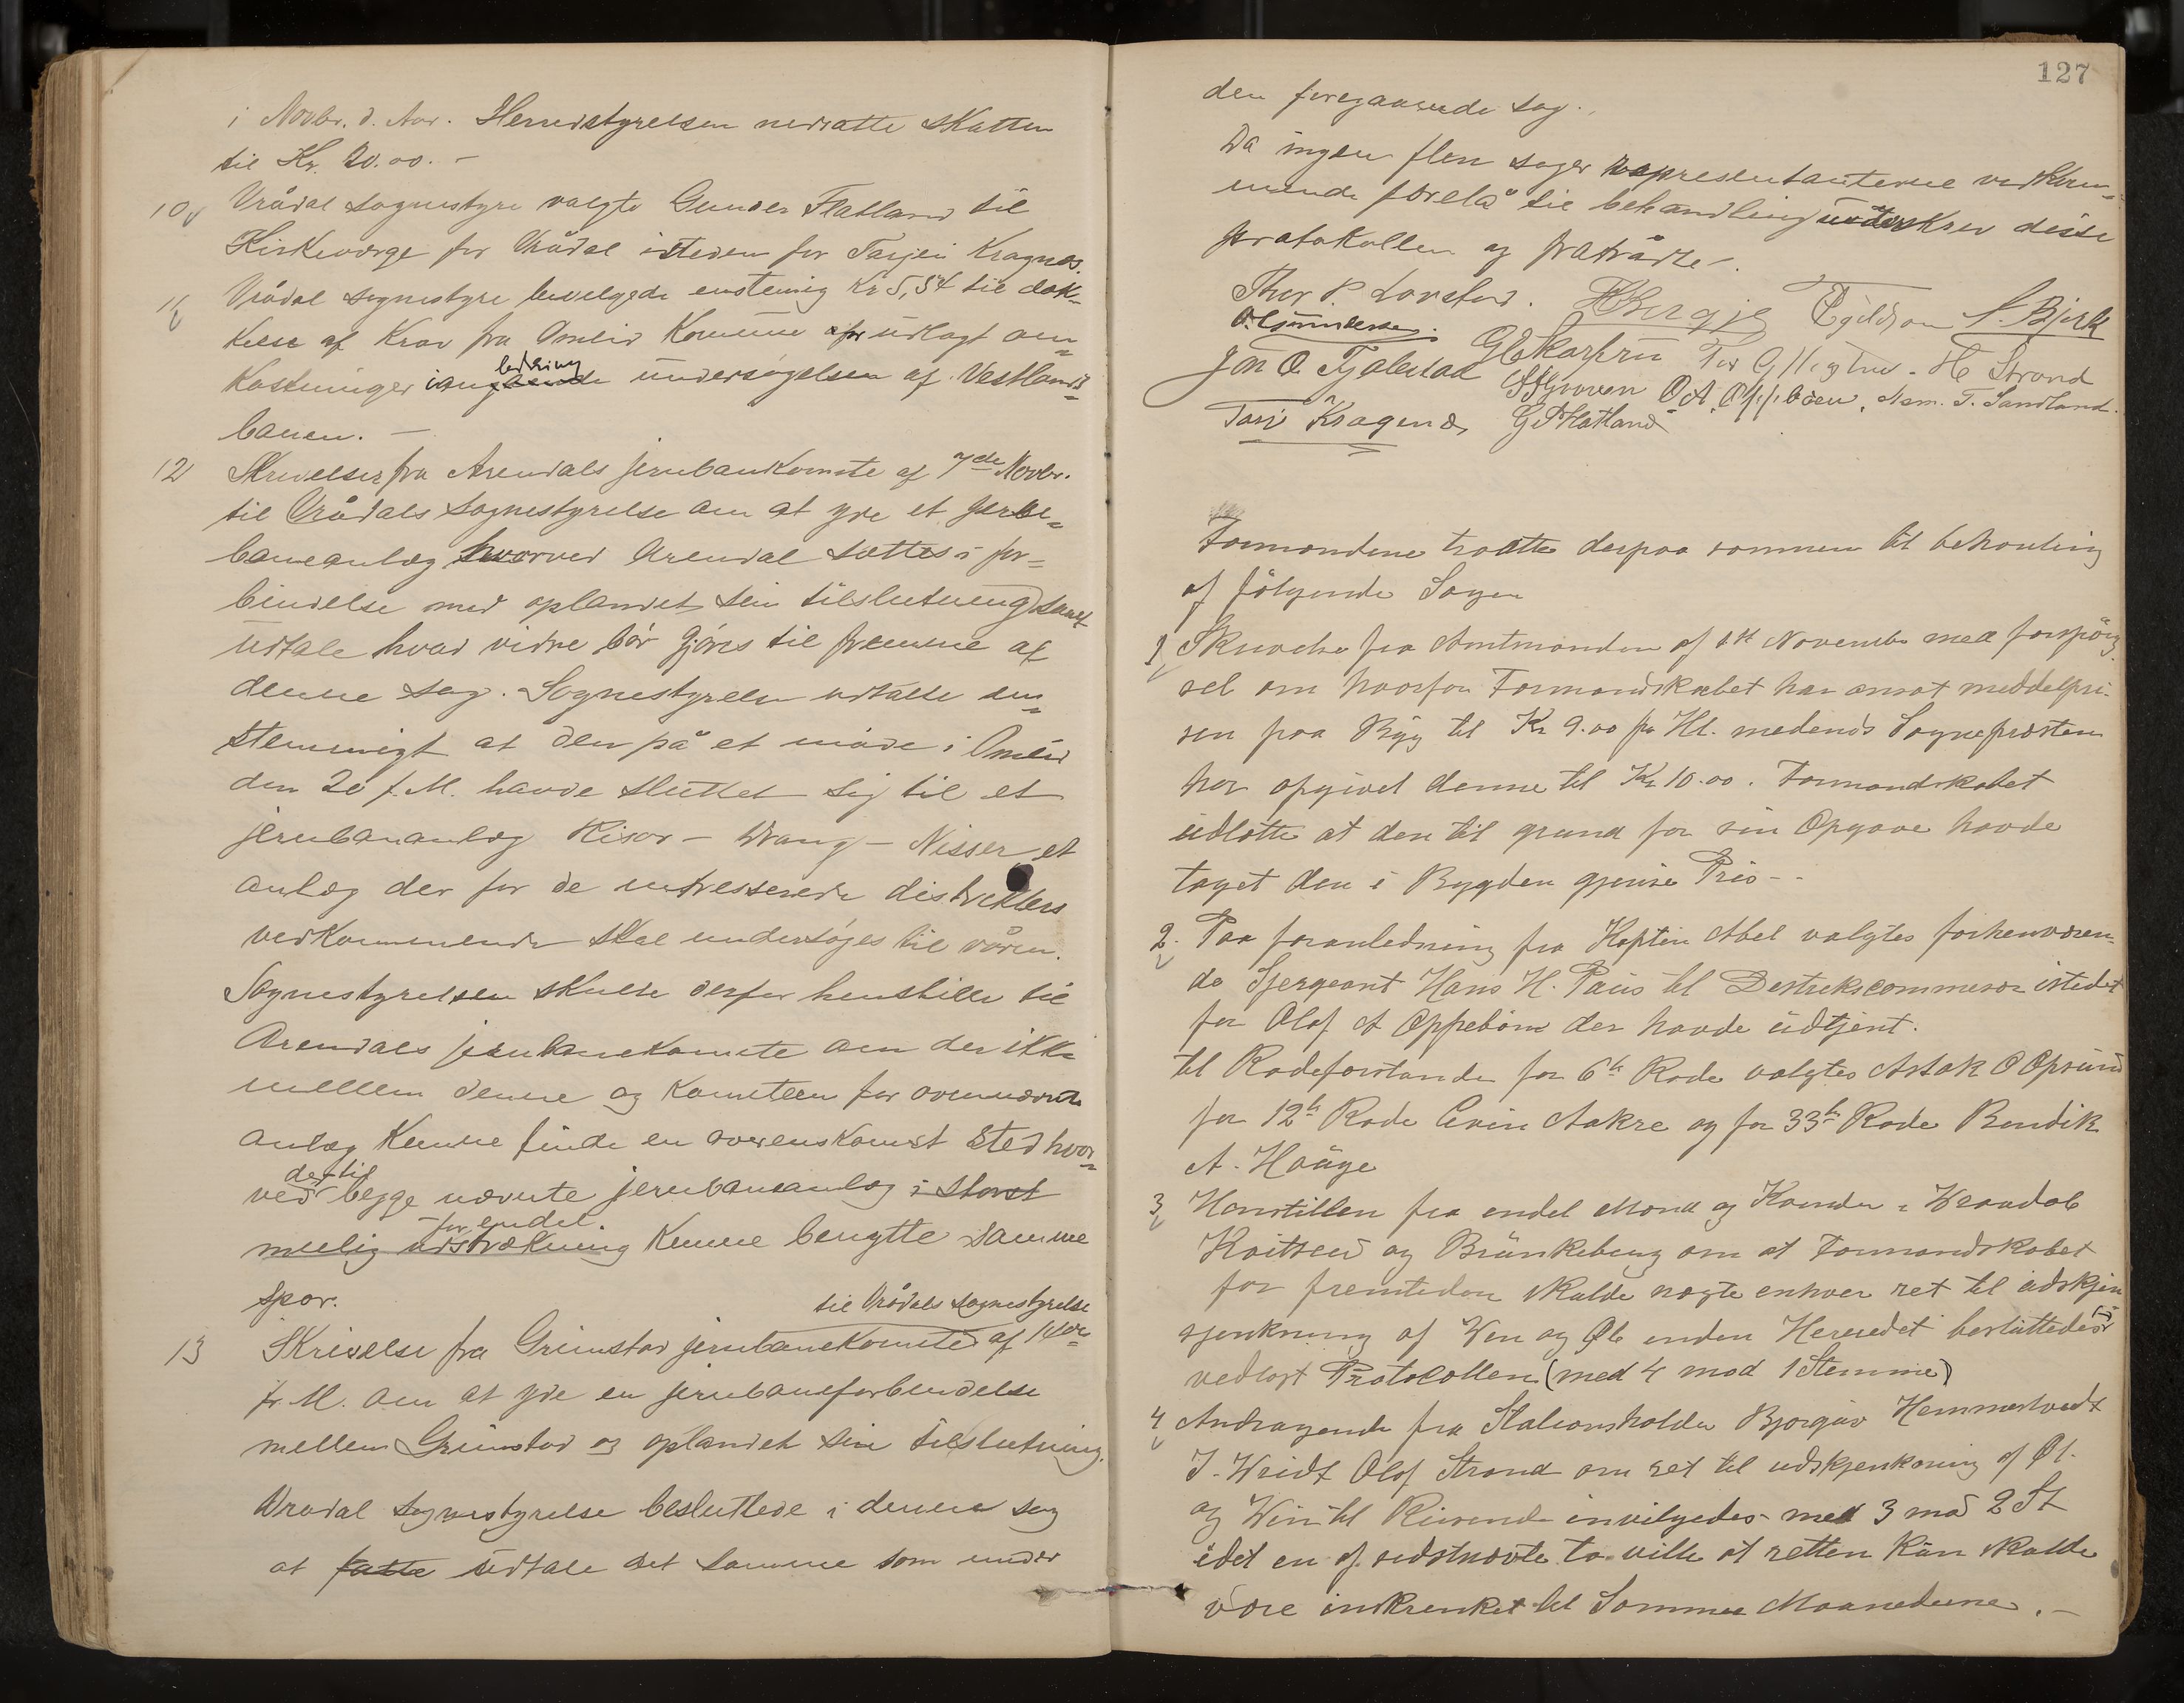 i Novbr. d. Aar. Herredstyrelsen nedsatte skatten
til Kr. 20.00. -
10 Vrådal sognestyre valgte Gunder Flatland til
Kirkeværge for Vrådal isteden for Tarjei Kragnæs.
11 Vrådal sognestyre bevilgede enstemig Kr 5,54 til dæk-
kelse af Krav fra Omlid Komune for udlagt om=
kostninger i anledning undersøgelsen af Vestlands=
banen. -
12 Skrivelser fra Arendals jernbankomite af 7de Novbr.
til Vrådals sognestyrelse om at yde et jernbe=
baneanlæg hvorved Arendal sættes i for=
bindelse med oplandet sin tilslutning samt
udtale hvad videre bør gjøres til fremme af
denne sag. Sognestyrelsen udtalte en=
stemmigt at den på et møde i Omlid
den 20 f. M. havde sluttet sig til et
jernbananlæg Risør - Vrang - Nisser, et
anlæg der for de interesserede distrikters
vedkommende skal undersøges til våren.
Sognestyrelsen skulde derfor henstille til
Arendals jernbanekomite om der ikke
mellem denne og komiteen for ovennævnte
anlæg kunne finde en overenskomst sted hvor=
ved dertil begge nævnte jernbaneanlæg i størst
mulig udstrækning for endel kunne benytte samme
spor.
til Vrådals sognestyrelse
13 Skrivelse fra Grimstad jernbanekomite af 14de
f. M. om at yde en jernbaneforbindelse
mellem Grimstad og oplandet sin tilslutning.
Vrådal sognestyrelse besluttede i denne sag
at fatte udtale det samme som under
127
den foregaaende sag.
Da ingen flere sager repræsentanterne vedkom=
mende forelå til behandling underskrev disse
protokollen og fratrådte -.
Thor P. Lovslad. HBergje Egildson S. Bjork
O. Gunderse.
Jon O. Fjalestad H. Strand
O. A. Oppebøen, Asm. T. Sandland.
Tarj Kragenæs G Flatland
Formændene traatte derpaa sammen til behanling
af følgende Sager
1, Skrivelse fra Amtmanden af 1st November med forspørg
sel om hvorfor Formandskabet har ansat meddelpri-
sen paa Byg til Kr 9.00 pr Hl. medends Sognepræsten
har opgivet denne til Kr 10.00. Formandskabet
udlatte at den til grund for sin Opgave havde
taget den i Bygden gjense Pris - -
2. Paa foranledning fra Kaptin Abel valgtes forhenværen-
de Sjergeant Hans H. Paus til Destrekscommesær istedet
for Olaf A Oppebøen der havde udtjent.
til Rodeforstander for 6te Rode valgtes Aslak O Opsund
for 12te Rode Evin Aakre og for 33te Rode Bendik
A. Hauge
3, Henstillen fra endel Mænd og Kvinder i Vraadal
Kvitseid og Brunkeberg om at Formandskabet
for fremtiden skulde nægte enhver ret til udskjen
sjenkning af Vin og Øl inden Herredet besluttedes
vedlagt Protocollen (med 4 mod 1 Stemme)
4, Andragende fra Stationsholder Bjorguv Hemmestvedt
J. Weidt Olaf Strand om ret til udskjenkning af Øl.
og Vin til Reisende invilgedes med 3 mod 2 St
idet en af sidstnævte to ville at retten kun skulde
være inskrenket til Sommer Maanederne. -